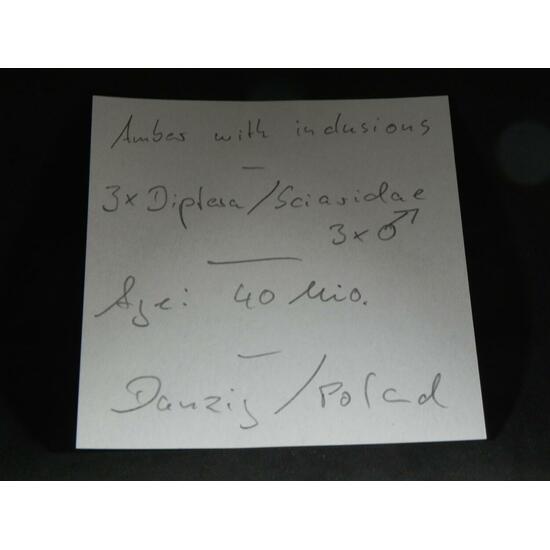 Amber with inclusions
3x Diptera/Sciaridae
3x ♂
Age: 40 Mio.
Danzig/Poland